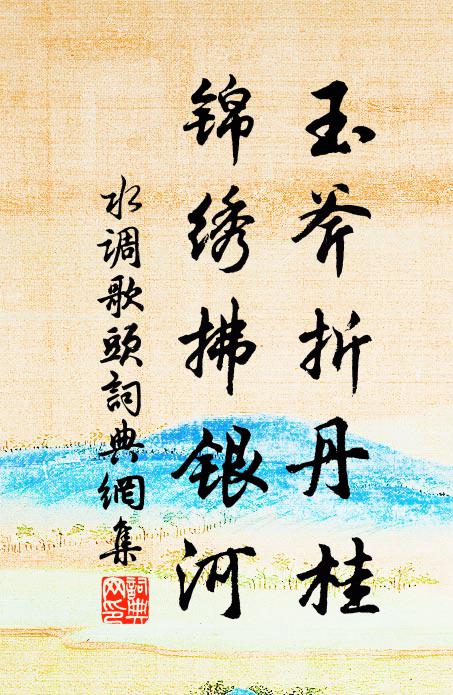 玉斧折丹桂
锦绣拂银河
水调歌頭詞典網集
詞典网印